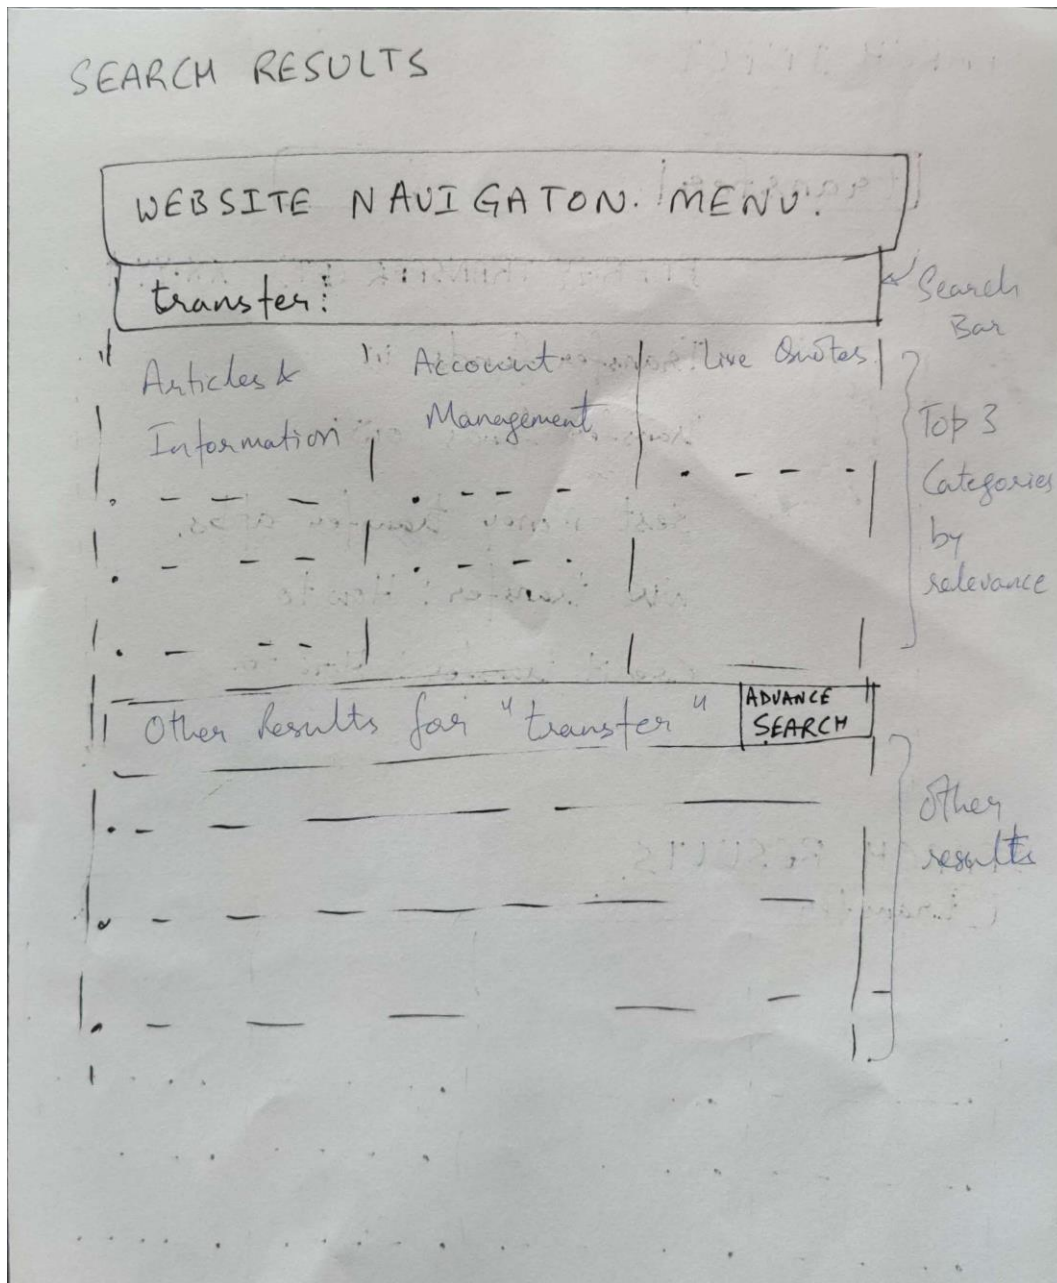 SEARCH RESULTS
WEBSITE NAVIGATON. MENU.
transfer:
Search
Bar
Articles &
Information
Account
Management
Live Quotes
Top 3
Categories
by
relevance
Other Results for "transfer"
ADVANCE
SEARCH
Other
results